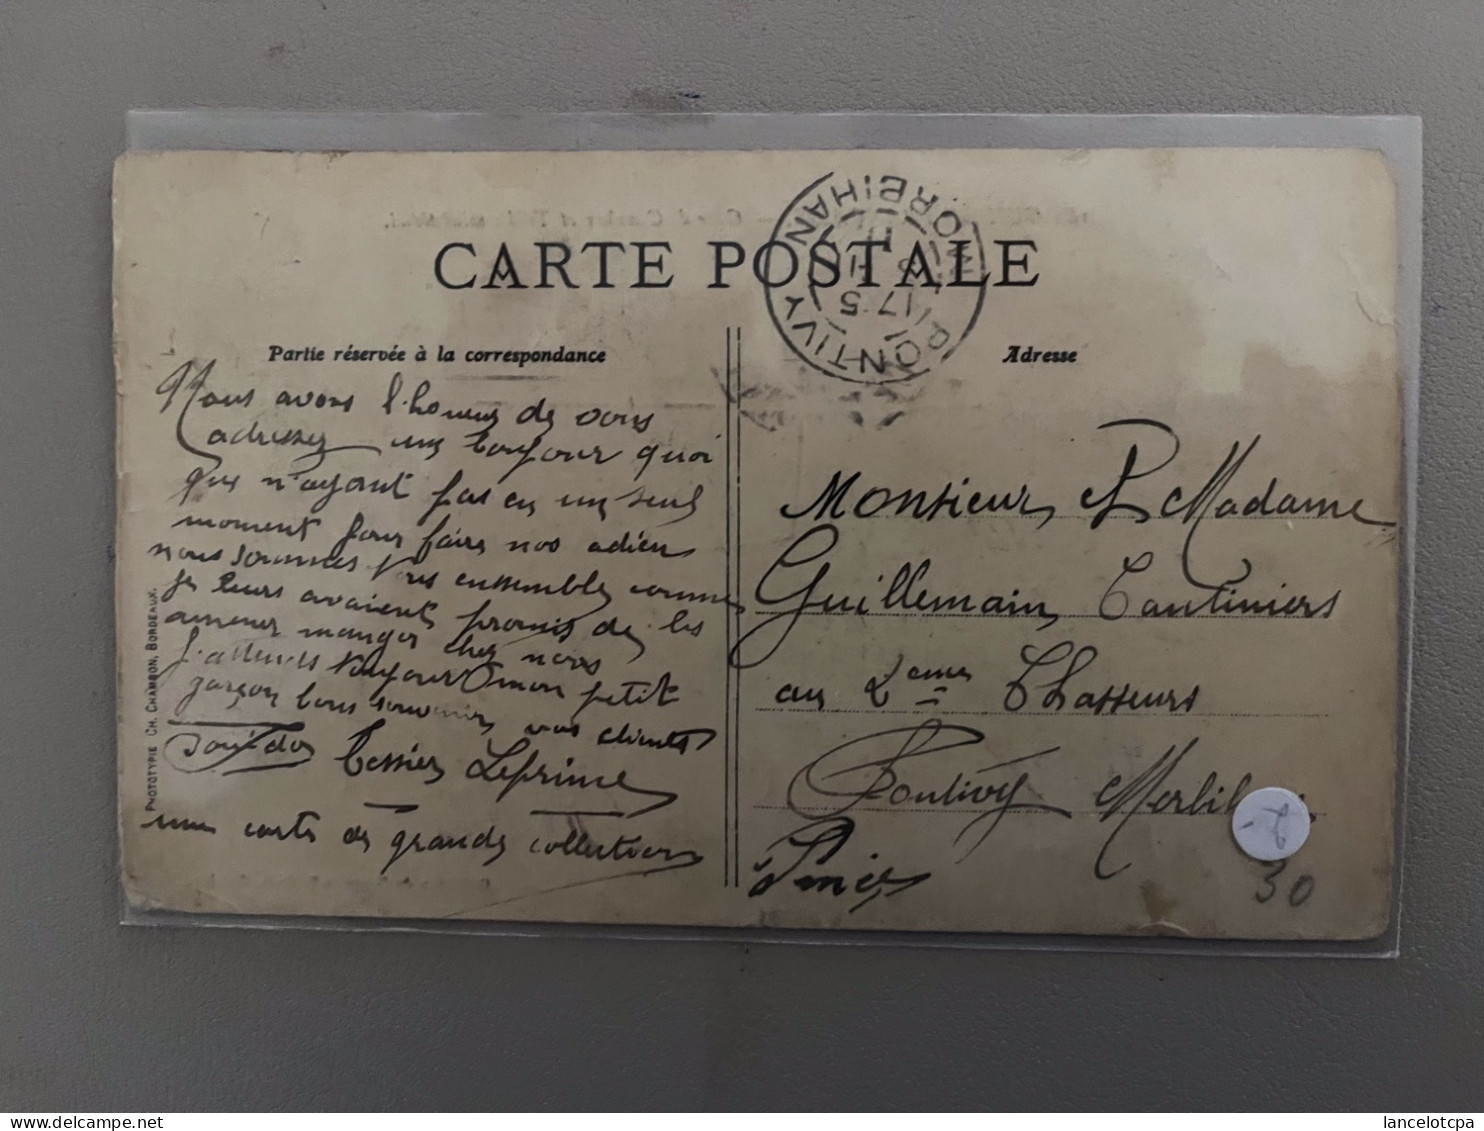 CARTE POSTALE
Partie réservée à la correspondance
Nous avons l'honeur de vous
adresser une bonjour quoi
que n'ayant pas eu un seul
moment pour faire nos adieu
nous sommes tous ensembles comme
je leurs avaient promis de les
amener manger chez nous
J'attends toujours mon petit
garçon bons souvenirs vos clients
Tessier Leprince
une carte de grande collection
PHOTOTYPIE CH. CHAMBON, BORDEAUX.
PONTIVY MORBIHAN
Adresse
Monsieur et Madame
Guillemain Cantiniers
au 2eme Chasseurs
Pontivy Morbih
30
lancelotcpa